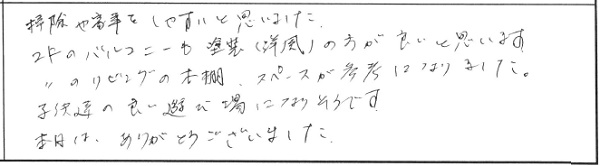 掃除や家事をしやすいと思いました。
2Fのバルコニーも塗装(洋風)の方が良いと思います
〃のリビングの本棚、スペースが参考になりました。
子供達の良い遊び場になりそうです
本日は、ありがとうございました。